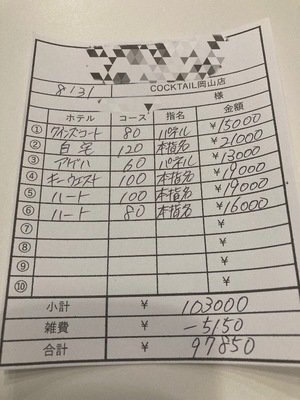 8131
COCKTAIL岡山店
様
ホテル コース 指名 金額
① クインズコート 80 パネル ¥15000
② 自宅 120 本指名 ¥21000
③ アゲハ 60 パネル ¥13000
④ キーウエスト 100 本指名 ¥19000
⑤ ハート 100 本指名 ¥19000
⑥ ハート 80 本指名 ¥16000
⑦ ¥
⑧ ¥
⑨ ¥
⑩ ¥
小計 ¥ 103000
雑費 ¥ -5150
合計 ¥ 97850